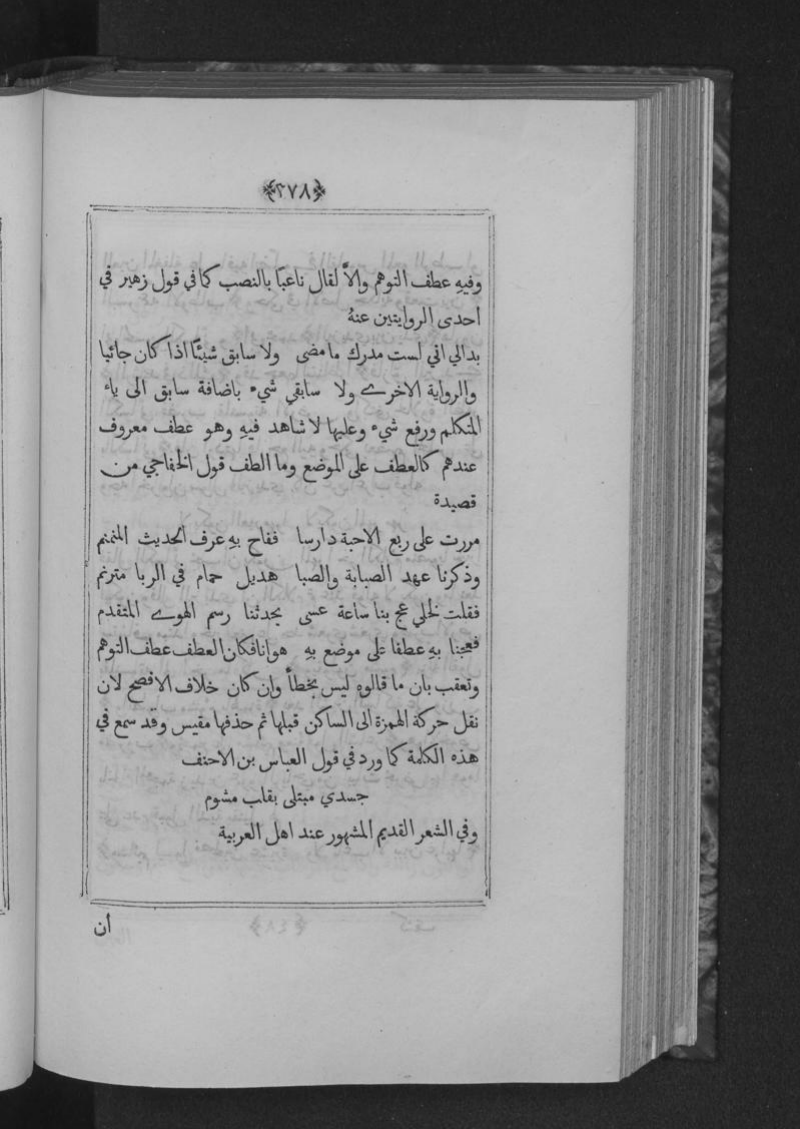 ﴿٢٧٨﴾
وفيهِ عطف التوهم والاَّ لقال ناعبًا بالنصب كما في قول زهير في
احدى الروايتين عنهُ
بدالي اني لست مدرك ما مضى ولا سابق شيئًا اذا كان جائيا
والرواية الاخرے ولا سابقي شيء باضافة سابق الى ياء
المتكلم ورفع شيء وعليها لا شاهد فيهِ وهو عطف معروف
عندهم كالعطف على الموضع وما الطف قول الخفاجي من
قصيدة
مررت على ربع الاحبة دارسا ففاح بهِ عرف الحديث المنمنم
وذكرنا عهد الصبابة والصبا هديل حمام في الربا مترنم
فقلت لخلي عج بنا ساعة عسى يحدثنا رسم الهوے المتقدم
فعجنا بهِ عطفا على موضع بهِ هوانا فكان العطف عطف التوهم
وتعقب بان ما قالوه ليس بخطأ وان كان خلاف الافصح لان
نقل حركة الهمزة الى الساكن قبلها ثم حذفها مقيس وقد سمع في
هذه الكلمة كما ورد في قول العباس بن الاحنف
جسدي مبتلى بقلب مشوم
وفي الشعر القديم المشهور عند اهل العربية
أن